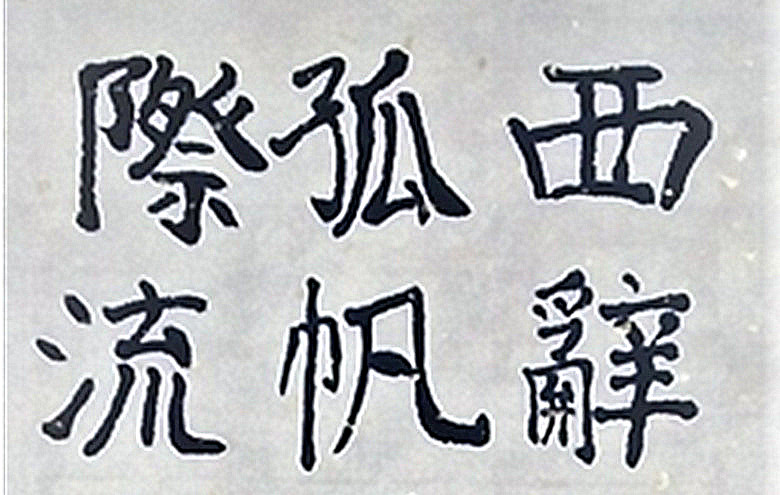 西辭
孤帆
際流